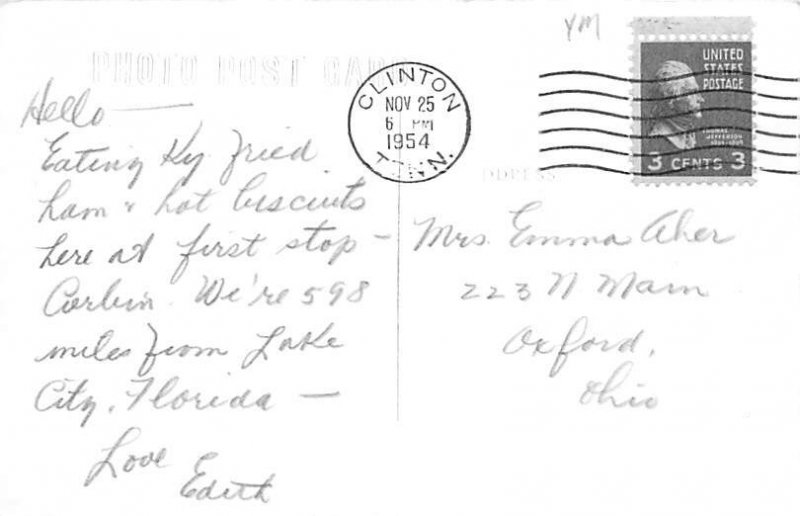 YM
PHOTO POST CARD
CLINTON
NOV 25
6 PM
1954
TENN.
UNITED
STATES
POSTAGE
THOMAS
JEFFERSON
3 CENTS 3
DDRESS
Hello —
Eating Ky fried
ham & hot biscuits
here at first stop —
Corbin. We're 598
miles from Lake
City, Florida —
Love
Edith
Mrs. Emma Aker
223 N Main
Oxford,
Ohio